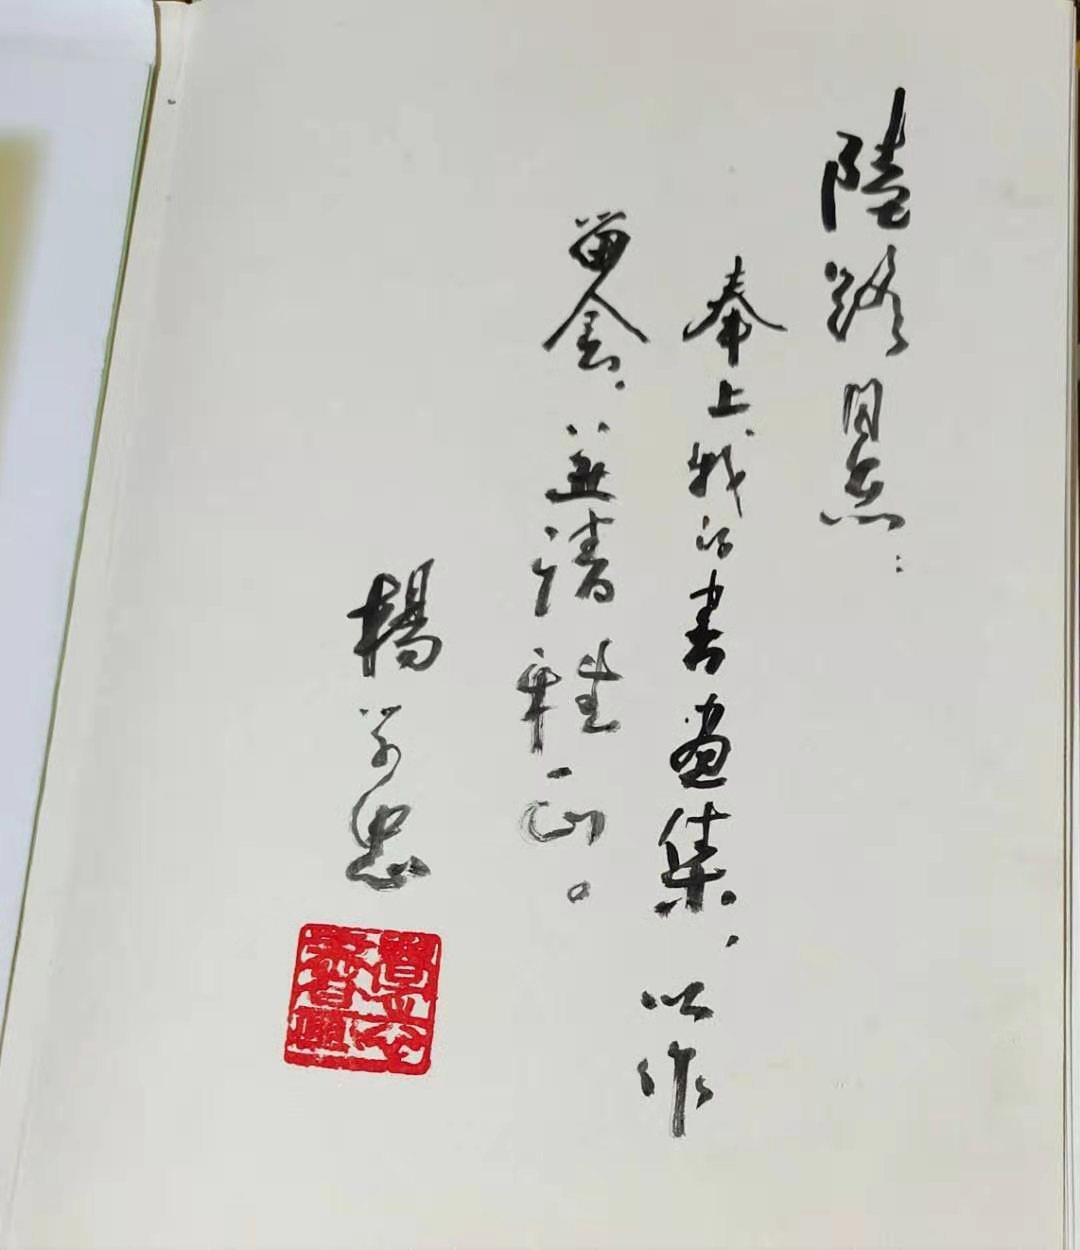 陸路同志：
奉上我的書畫集，以作
留念，並請雅正。
楊萬忠